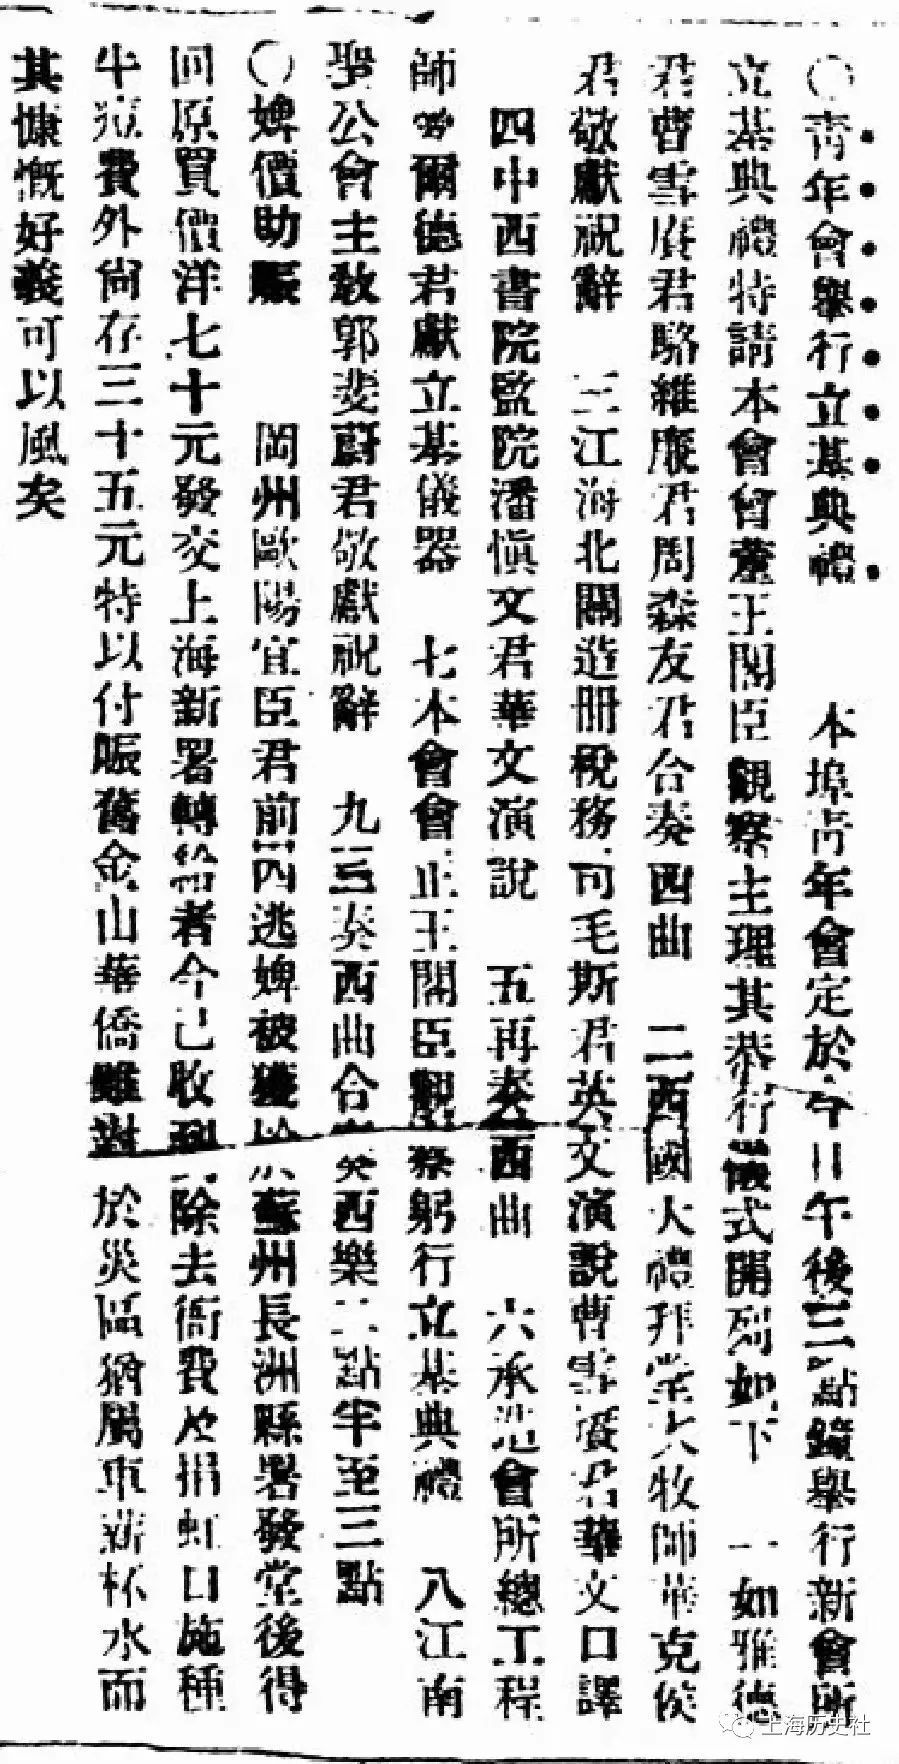 ○青年會舉行立基典禮　本埠青年會定於今日午後三點鐘舉行新會所
立基典禮特請本會會董王閣臣觀察主理其恭行儀式開列如下　一如雅德
君曹雪賡君駱維廉君周森友君合奏西曲　二西國大禮拜堂大牧師華克侯
君敬獻祝辭　三江海北關造冊稅務司毛斯君英文演說曹雪賡君華文口譯
四中西書院監院潘愼文君華文演說　五再奏西曲　六承造會所總工程
師 爾德君獻立基儀器　七本會會正王閣臣觀察躬行立基典禮　八江南
聖公會主敎郭斐蔚君敬獻祝辭　九三奏西曲合 奏西樂二點半至三點
○婢價助賑　岡州歐陽宜臣君前因逃婢被獲 蘇州長洲縣署發堂後得
回原買價洋七十元發交上海新署轉給者今已收到 除去衙費及捐虹口施種
牛痘費外尙存三十五元特以付賑舊金山華僑雖對於災區猶屬車薪杯水而
其慷慨好義可以風矣
上海历史社